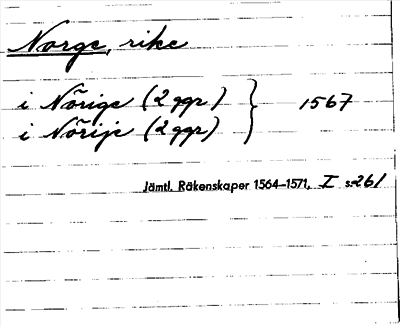 Norge, rike
i Nörige (2 ggr) } 1567
i Nörije (2 ggr)
Jämtl. Räkenskaper 1564–1571, I s. 261